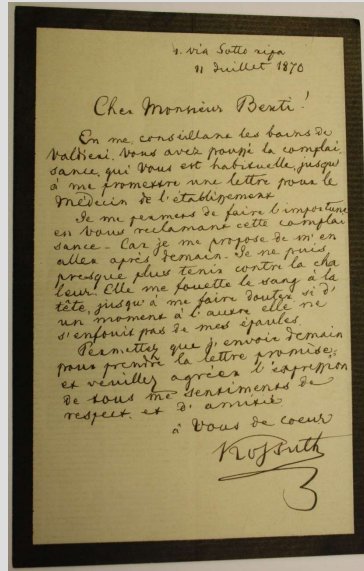 1. via Sotto ripa
11 Juillet 1870
Cher Monsieur Berti!
En me conseillant les bains de
Valdieri, vous avez poussé la complai
sance, qui Vous est habituelle, jusqu'
à me promettre une lettre pour le
Médecin de l'établissement
Je me permets de faire l'importune
en Vous reclamant cette complai
sance – Car je me propose de m'en
aller après demain. Je ne puis
presque plus tenir contre la cha
leur. Elle me fouette le sang à la
tête, jusqu'à me faire douter si d'
un moment à l'autre elle ne
s'enfouit pas de mes épaules.
Permettez que j'envoie demain
pour prendre la lettre promise,
et veuillez agréer l'expression
de tous me sentiments de
respect et d'amitié
à Vous de coeur
Kossuth